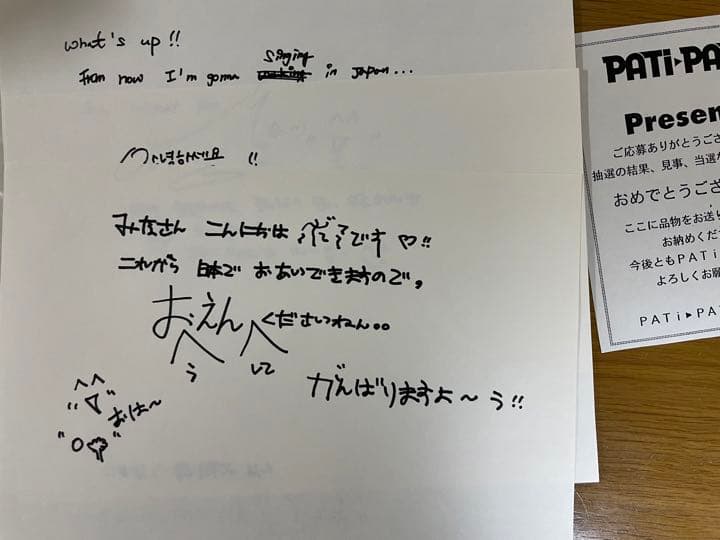 what's up !!
From now I'm gonna singing in Japan...
안녕하세요 !!
みなさん こんにちは です ♡!!
これから 日本で おあいできますので,
おえんくださいねん..
う して
がんばりますよ～ う!!
おは～
PATi▶PA
Presen
ご応募ありがとうござ
抽選の結果、見事、当選な
おめでとうござ
ここに品物をお送り
お納めくださ
今後ともPATi
よろしくお願
PATi▶PA